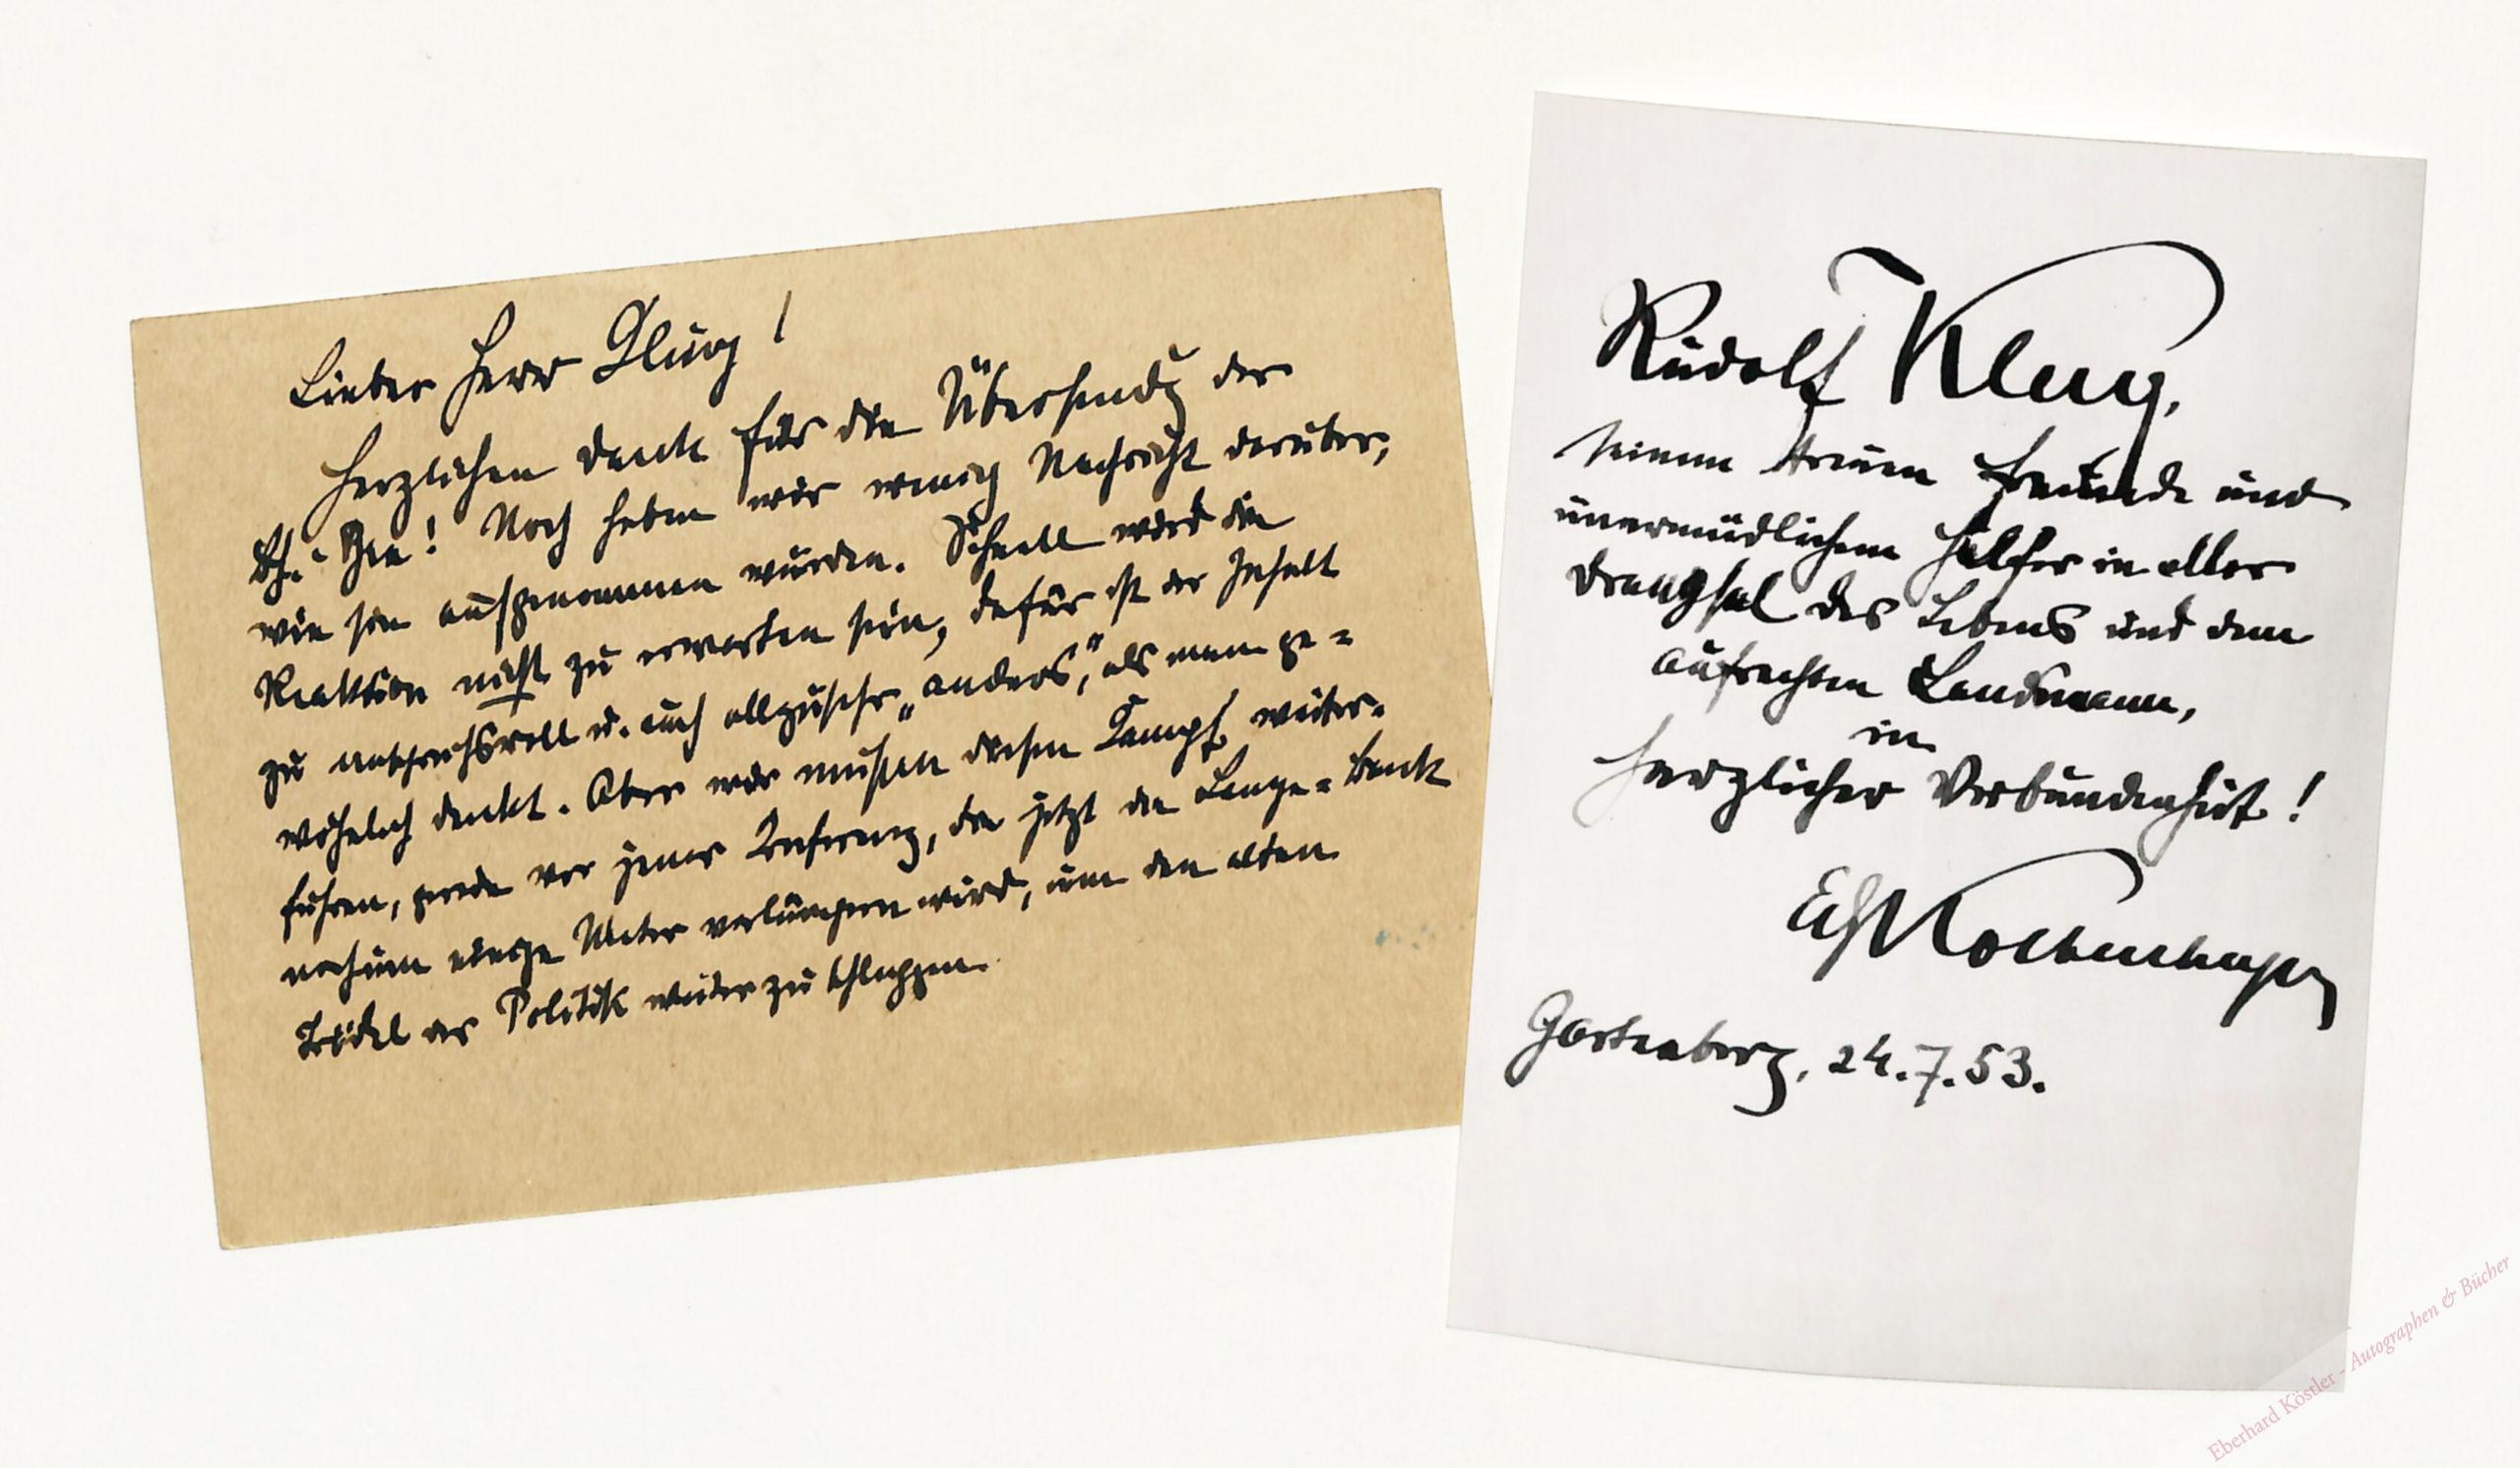 Lieber Herr Klug!
Herzlichen Dank für die Übersendg der
Noch haben wir wenig Nachricht darüber,
wie sie aufgenommen wurden. Schnell wird die
Reaktion nicht zu erwarten sein, dafür ist der Inhalt
zu anspruchsvoll u. auch allzusehr „anders", als man ge=
wöhnlich denkt. Aber wir müssen diesen Kampf weiter-
führen, gerade vor jener Konferenz, die jetzt die Lange=Bank
noch um einige Meter verlängern wird, um den alten
Trödel der Politik weiter zu schleppen.
Rudolf Klug,
seinem treuen Freunde und
unermüdlichem Helfer in aller
Drangsal des Lebens und dem
aufrechten Landsmann,
in
herzlicher Verbundenheit!
EGKolbenheyer
Gartenberg, 24.7.53.
Eberhard Köstler - Autographen & Bücher